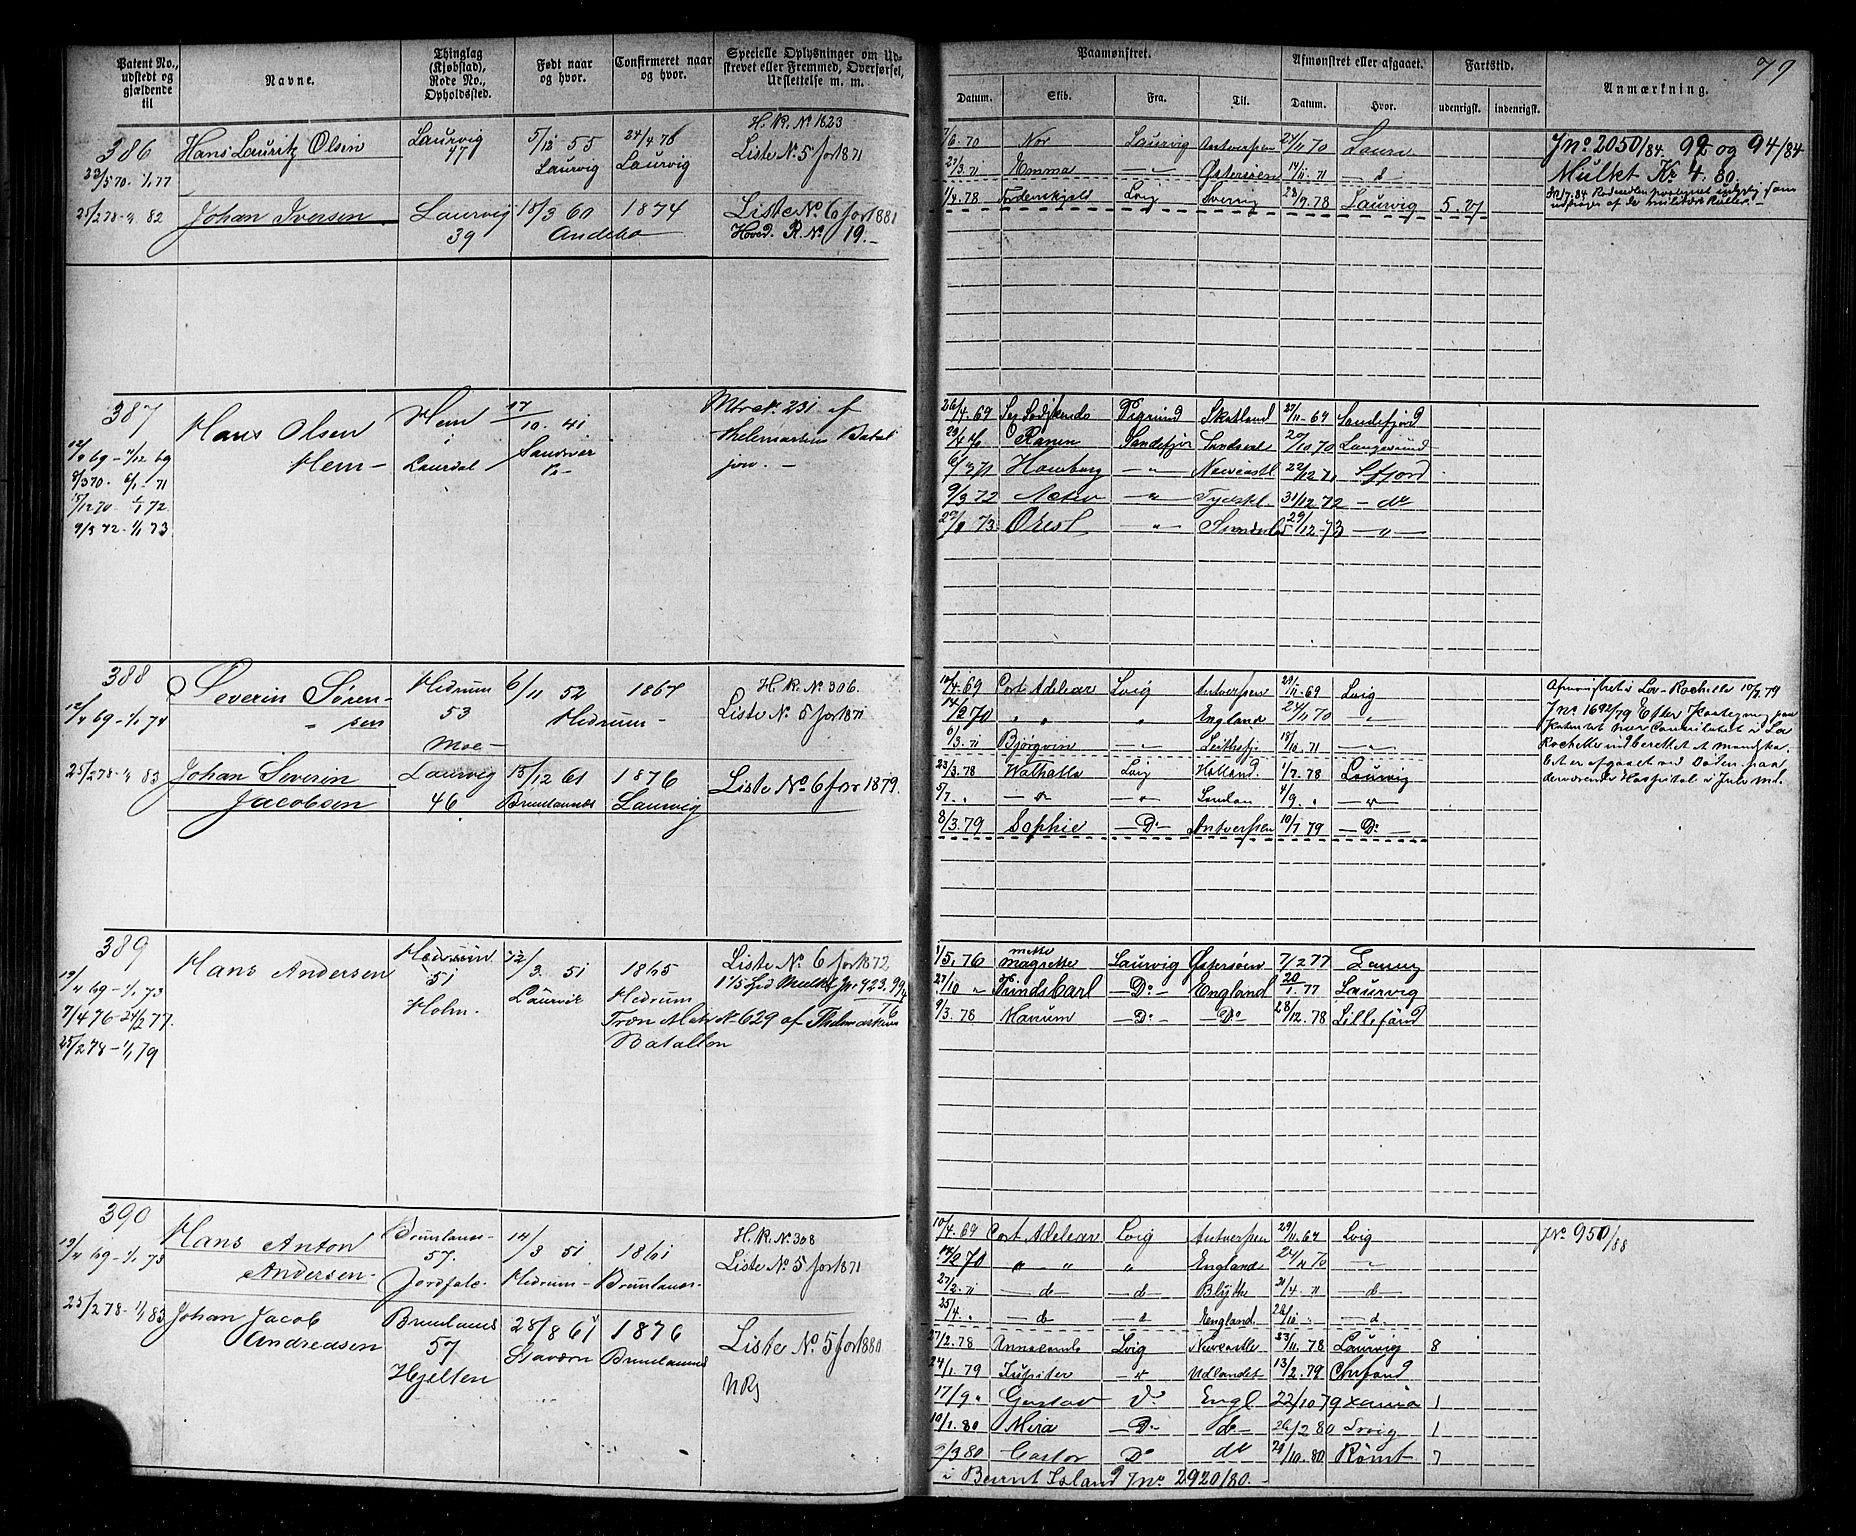 79
Patent No., udstedt og gjældende til
Navne.
Thinglag (Kjøbstad), Rode No., Opholdssted.
Født naar og hvor.
Confirmeret naar og hvor.
Specielle Oplysninger om Udskrevet eller Fremmed, Overførsel, Udslettelse m. m.
Paamønstret.
Afmønstret eller afgaaet.
Fartstid.
Anmærkning.
Datum.
Skib.
Fra.
Til.
Datum.
Hvor.
udenrigst.
indenrigst.
386
22/5 70. 1/1 77
Hans Lauritz Olsen
Laurvig
47
5/12 55
Laurvig
24/4 70
Laurvig
H. R. No 1823
Liste No. 5 for 1871
7/6 70 Nor Laurvig Antwerpen 24/11 70
23/3 71 Emma — „ — Østersøen 14/11 71 — d —
J no 2050/84. 92 og 94/84
Mulkt Kr. 4. 80.
25/2 78 - 1/1 82
Johan Iversen
Laurvig
39
18/3 60
Andebo
1874
Liste No. 6 for 1881
Hoved. R. No. 19. —
1/4. 78 Tordenskjold Lvig Sverrig 28/9. 78 Laurvig 5. 27
387
12/4 69 - 1/12 69
8/3 70 - 6/1 71
15/12 70 1/1 72
9/3 72 - 1/1 73
Hans Olsen
Hem —
Hem
i
Laurdal
17/10. 41
Mtr. No. 231 af
Thelemarkens Batal
jon. —
26/4. 69 Skotland 27/11. 69 Sandefjord
Ranen Sandefjor 20/10 70 Langesund
6/3 71 Hamborg — „ — Newcastl 22/12 71 Sfjord
9/3 72 — „ — 31/12 72 — do
Orest — „ — 29/12 - 73 — „ —
388
12/4 69 - 1/1 74
Severin Søren-
„ sen
Hedrum
53
Moe —
6/11 52
Hedrum —
1867
H. R. No. 306.
Liste No. 5 for 1871
10/4. 69 Cort Adelaer Lvig Antverpen 29/11. 69 Lvig
14/2 70 „ „ „ England 24/11 70 — „ —
6/3. 71 Bjørgvin „ 18/10. 71 — „ —
Afmønstret i La Rochelle 10/7. 79
J No. 1692/79 Efter Paategning paa
Patentet over Consulatet i La
Rochelle indberettet at mandska-
bet er afgaaet ved Døden paa
derværende Hospital i Juli Md.
25/2 78 - 1/1 83
Johan Severin
Jacobsen
Laurvig
46
15/12 61
Brunlanæs
1876
Laurvig
Liste No. 6 for 1879.
23/3. 78 Walhalla Lvig Holland. 1/7. 78 Laurvig
5/7. „ — „ — — „ — London 4/9. „ — „ —
8/3. 79 Sophie — Do — Antverpen 10/7. 79 — Do —
389
12/4 69 - 1/1 73
7/4 76 - 24/2 77.
25/2 78 - 1/1 79
Hans Andersen
Hedrum
51
Holm.
12/3. 51
Laurvik
1865
Hedrum
Liste No. 6 for 1872
Tron Mats No. 629 af Thelemarkens
Batallon
1/5. 76 mette Magrette Laurvig Østersøen 7/2 77
27/10 „ Trinds Carl — Do — England 20/1. 77 Laurvig
9/3. 78 Hanum — Do — — Do — 28/12. 78 Lillesand
390
12/4 69 - 1/1 73
Hans Anton
Andersen —
Brunlanæs —
57.
14/3 51
Hedrum —
1861
Brunlanæs —
H. R. No. 308
Liste No. 5 for 1871
10/4. 69 Cort Adelaer Lvig Antverpen 29/11. 69 Lvig
14/2 70 „ „ „ England 24/11 70 — „ —
27/2. 71 — d — — d — Blythe 21/4 71 — d —
25/4. — d — — d — England 26/10 „ — d.
J No. 950/88
25/2 78 - 1/1 83
Johan Jacob
Andreasen
Brunlanæs
57
Hjelten
28/8 61
Stavern
1876
Brunlanæs
Liste No. 5 for 1880
27/2. 78 Lvig Newcastle 23/11. 78 Laurvig 8
24/1. 79 Jupiter „ Udlandet 13/2. 79 Chrsand
17/9 „ Gustav Do Engl 22/10 79 Xania 1
10/1. 80 Mira — Do — 26/2 80 1
9/3 80 Castor Do do 29/10. 80 Rømt 7
i Burnt Island J no. 2920/80. —